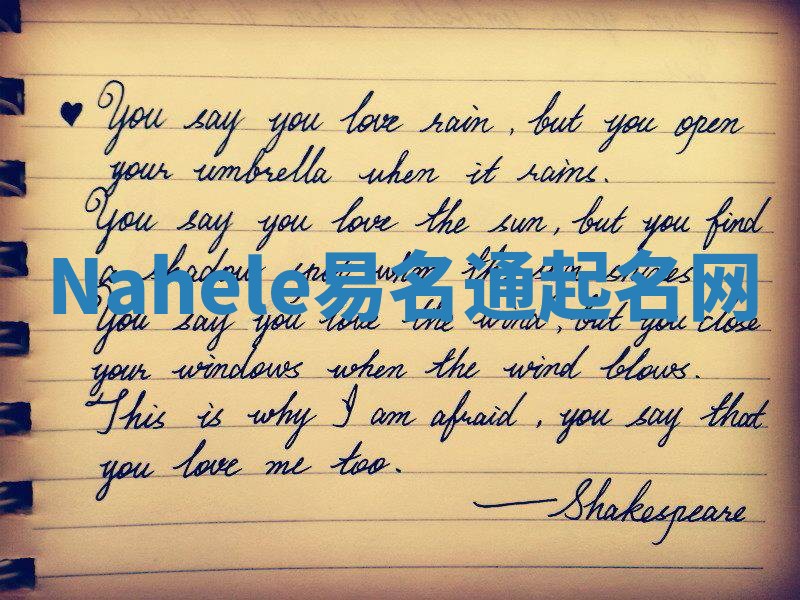 ♥ You say you love rain, but you open
your umbrella when it rains.
You say you love the sun, but you find
a shadow spot when the sun shines.
Nahele易名通起名网
You say you love the wind, but you close
your windows when the wind blows.
This is why I am afraid, you say that
you love me too.
— Shakespeare